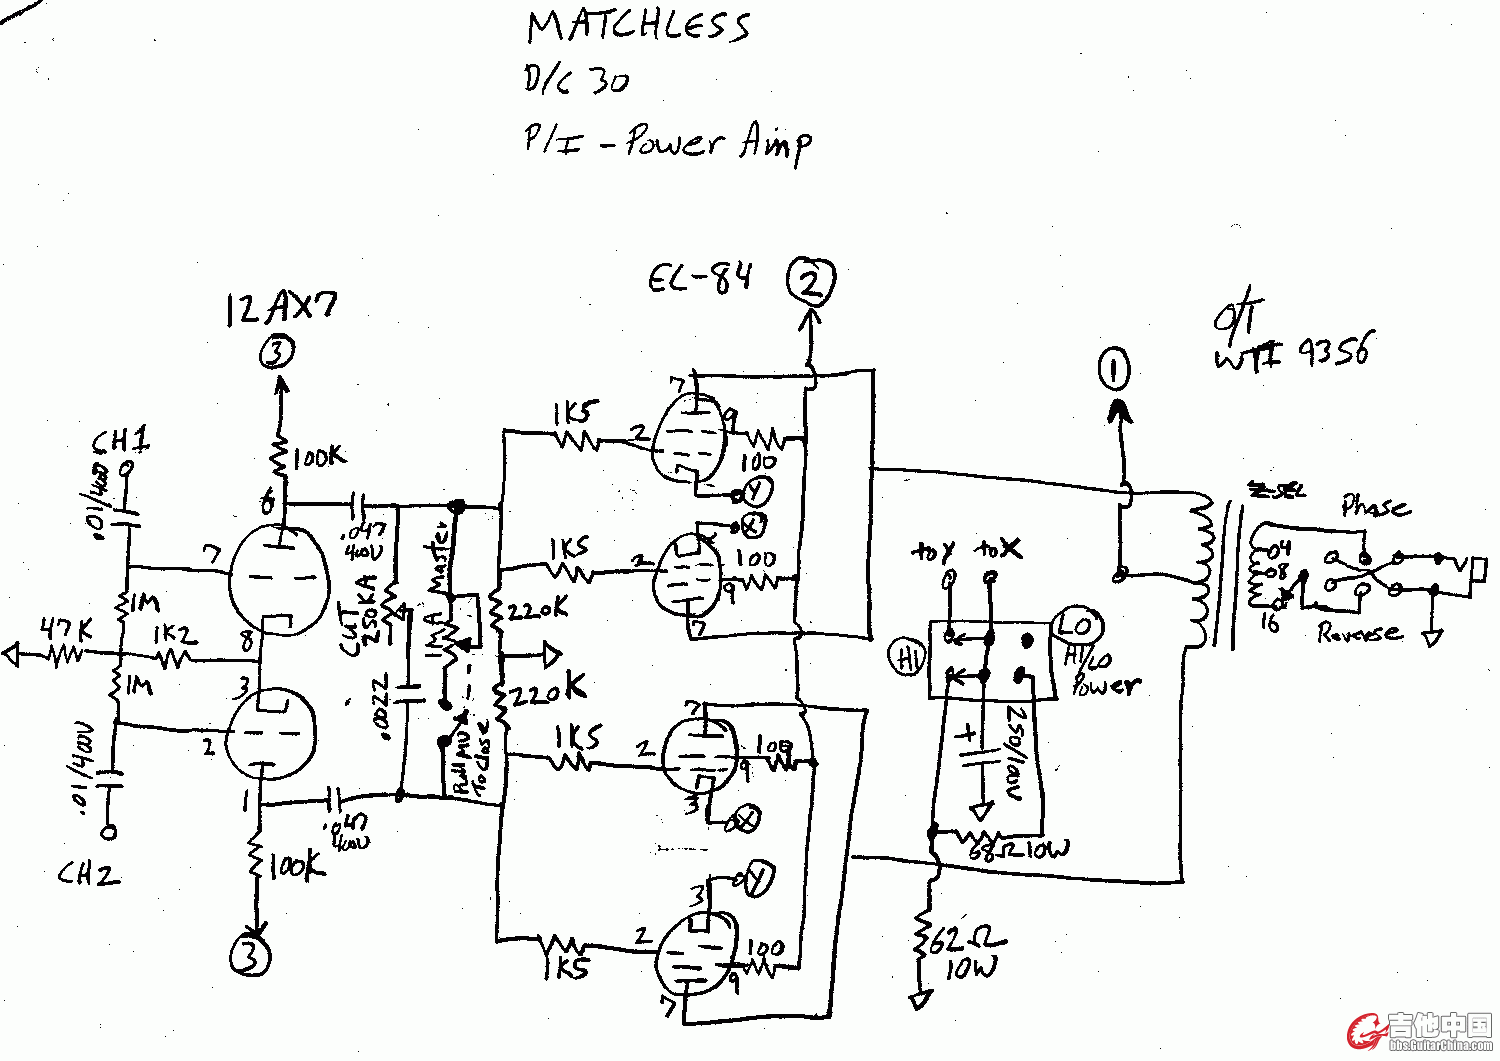 MATCHLESS
D/C 30
P/I - Power Amp
EL-84
2
12AX7
3
O/T
WTI 9356
1
7
1K5
2
9
100
CH1
100K
.01/400V
6
Y
Z-SEL
Phase
.047
400V
X
7
1K5
2
100
9
to Y
to X
04
08
16
Reverse
1M
Master
CUT
250KA
220K
7
47K
1K2
8
1MA
HI
LO
HI/LO
Power
1M
3
.0022
220K
7
2
1K5
2
100
9
+
250/100V
.01/400V
Pull MV
To Close
3
X
1
.047
400V
68Ω 10W
CH2
100K
3
Y
2
100
62Ω
10W
3
1K5
9
7
吉他中国
bbs.GuitarChina.com